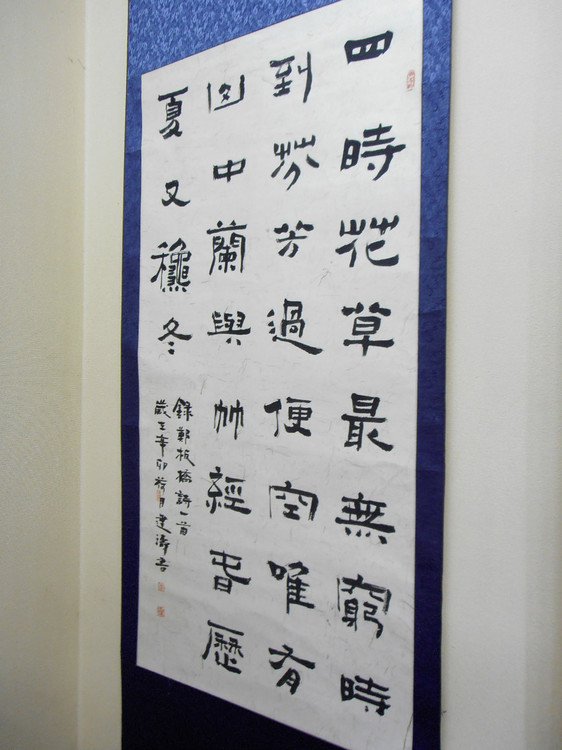 四時花草最無窮時
到芬芳過便空唯有
山中蘭與竹經春歷
夏又龝冬
錄鄭板橋詩一首
歲在辛卯荷月建濤書